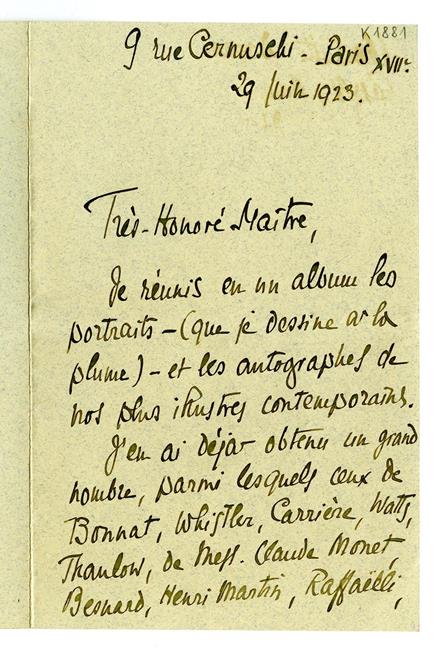 K 1881
9 rue Cernuschi - Paris XVIIe
29 Juin 1923.
Très-Honoré Maître,
Je réunis en un album les
portraits - (que je dessine à la
plume) - et les autographes de
nos plus illustres contemporains.
J'en ai déjà obtenu un grand
nombre, parmi lesquels ceux de
Bonnat, Whistler, Carrière, Watts,
Thaulow, de Mess. Claude Monet,
Besnard, Henri Martin, Raffaëlli,